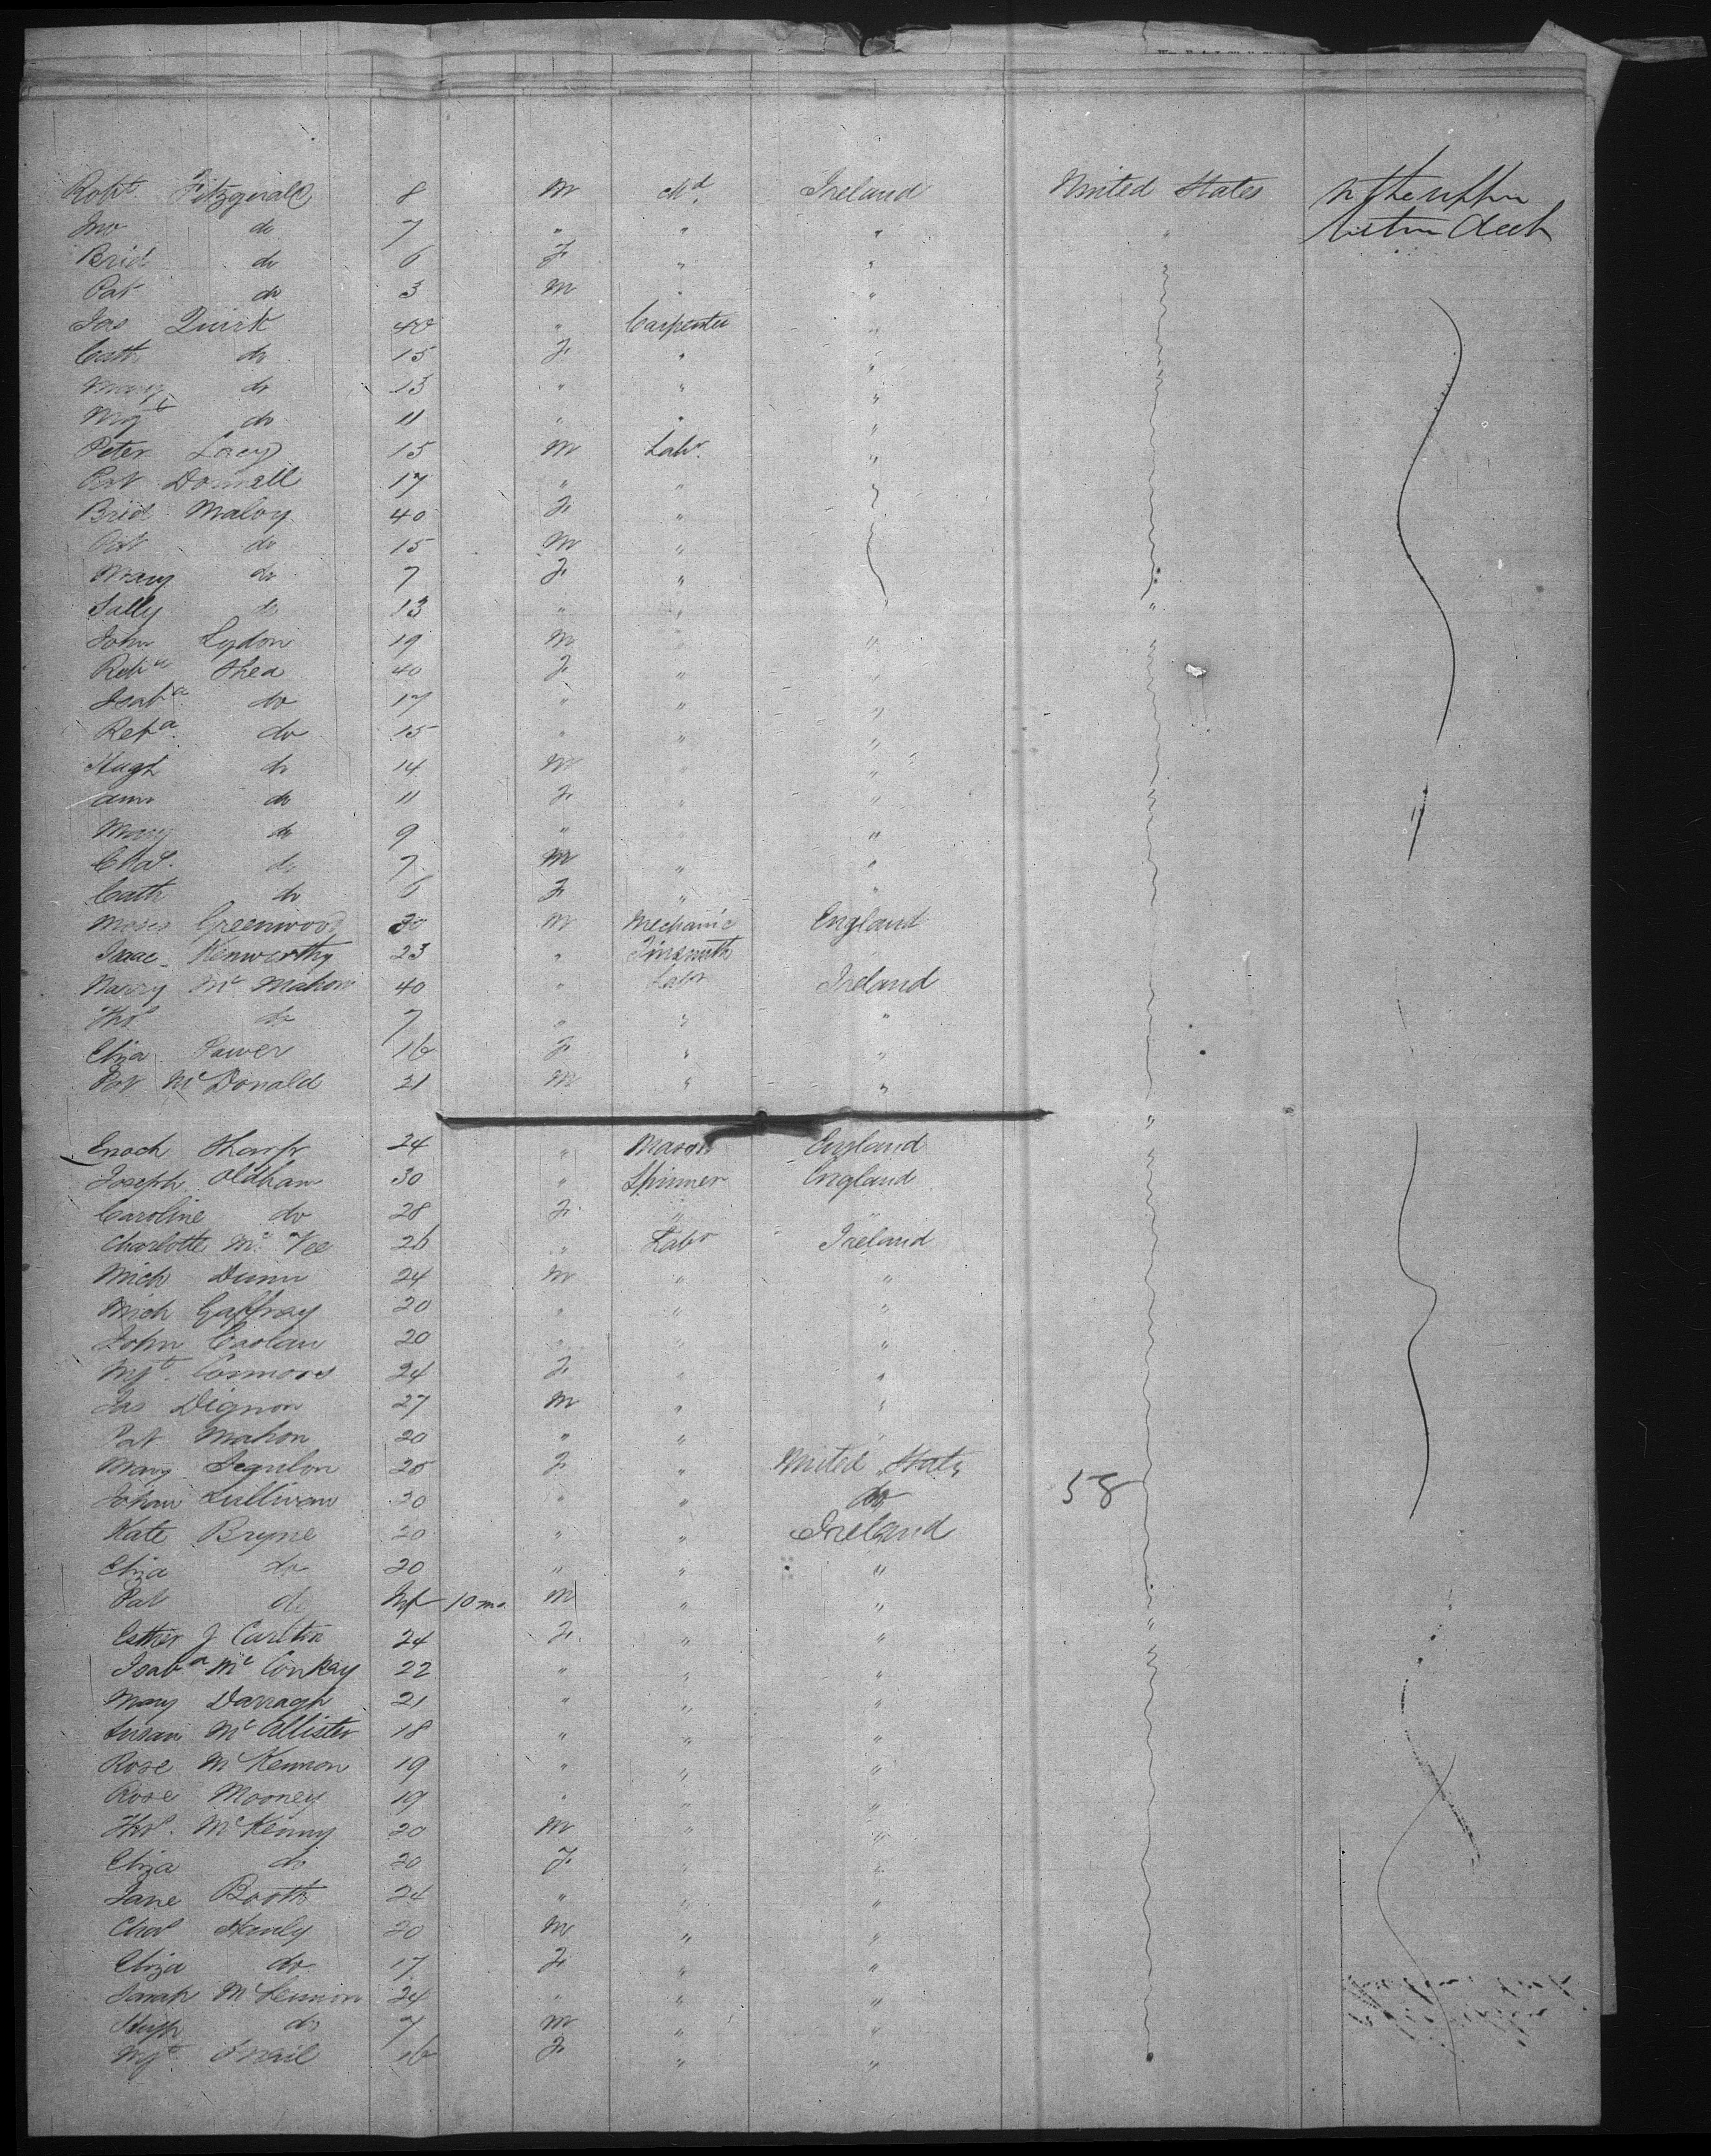 Robt. Fitzgerald 8 M Ireland United States
Jno do 7 " " " "
Brid do 6 F " "
Pat do 3 M " "
Jas Quirk 40 " Carpenter "
Cath do 15 F " "
Mary do 13 " " "
Mgt do 11 " " "
Peter Lacy 15 M Labr. "
Pat Donnell 17 " "
Brid Maloy 40 F "
Pat do 15 M "
Mary do 7 F "
Sally do 13 " " "
John Lydon 19 M " "
Reba Shea 40 F " "
Isaba do 17 " " "
Reba. do 15 " " "
Hugh do 14 M " "
Ann do 11 F " "
Mary do 9 " "
Chas. do 7 M " "
Cath do 6 F " "
Moses Greenwood 30 M Mechanic England
Isaac Kenworthy 23 " Tinsmith
Mc Mahon 40 " Labr Ireland
Thos do 7 " " "
Eliza 16 F " "
Pat McDonald 21 M " "
Enoch Sharp 24 " Mason England
Joseph Oldham 30 " Spinner England
Caroline do 28 F " "
Charlotte Mc Vee 26 " Labr Ireland
Mich Dunn 24 M " "
Mich Gaffray 20 " " "
John Caolan 20 " " "
Mgt. Connors 24 F " "
Jas Dignon 27 M " "
Pat Mahon 20 " "
Mary 25 F " United States
Johan Sullivan 20 " " do 58
Kate Bryne 20 " " Ireland
Eliza do 20 " " "
Pat do Inf 10 mo. M " "
Esther J Carlton 24 F " " "
Isaba Mc Conkay 22 " " "
Mary Darragh 21 " " "
Susan McAllister 18 " " "
Rose McKennon 19 " " "
Rose Mooney 19 " " "
Thos. McKenny 20 M " "
Eliza do 20 F " "
Jane Booth 24 " " "
Chas Henly 20 M " "
Eliza do 17 F " "
Sarah McLennon 24 " " "
do 7 M " "
Mgt ONeil 16 F " "